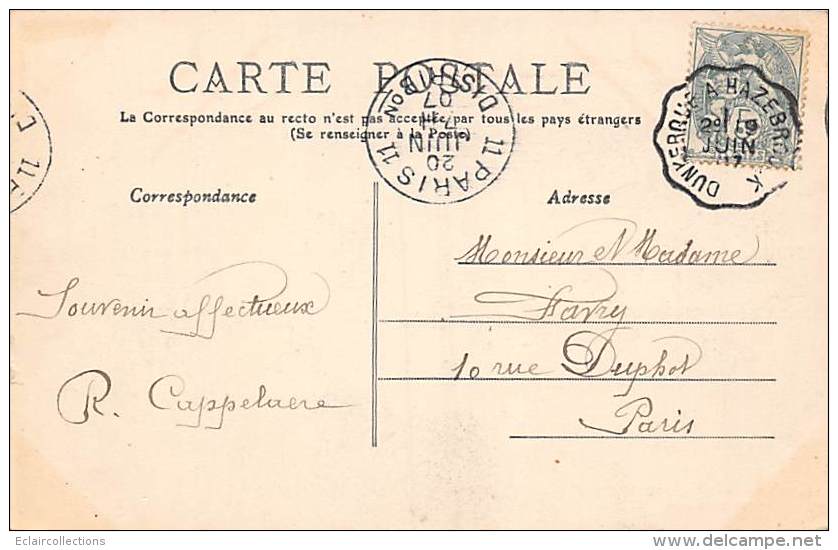 CARTE POSTALE
La Correspondance au recto n'est pas acceptée par tous les pays étrangers
(Se renseigner à la Poste)
PARIS 11 DISTRIBON 11
07
20
JUIN
DUNKERQUE A HAZEBROUCK
2º 19
JUIN
07
11
Correspondance
Adresse
Souvenir affectueux
R. Cappelaere
Monsieur et Madame
Favry
10 rue Duphot
Paris
Eclaircollections
delcampe.net